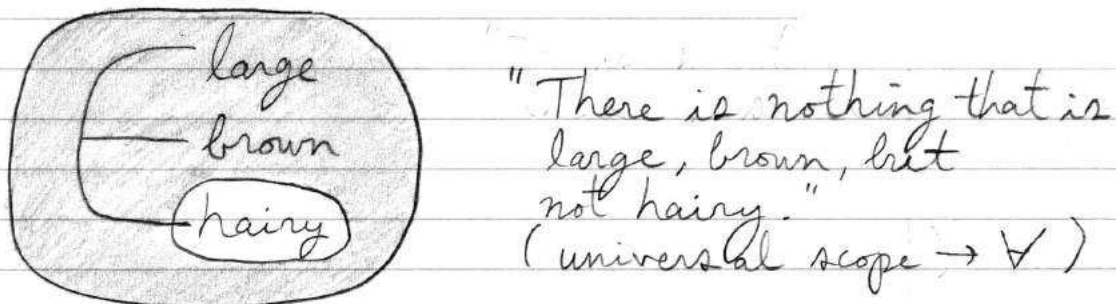 large
brown
hairy
"There is nothing that is
large, brown, but
not hairy."
(universal scope → ∀)